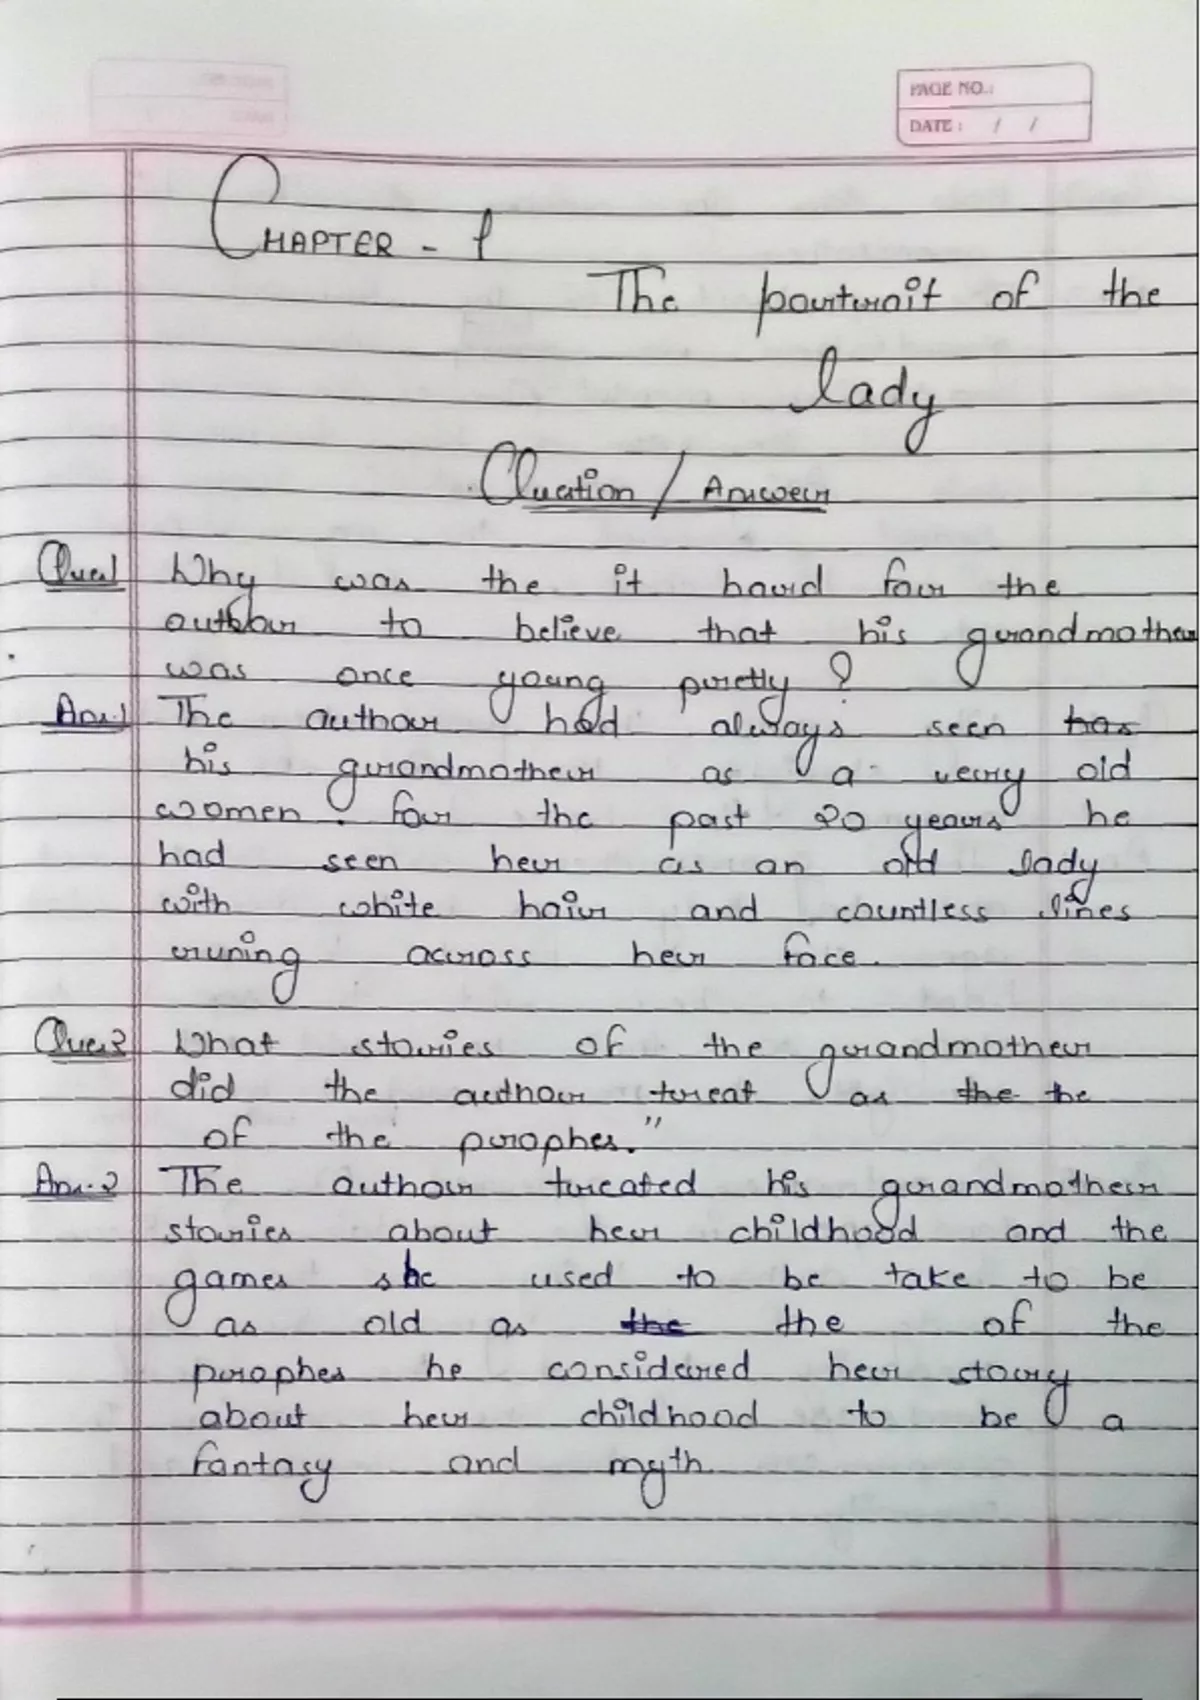 PAGE NO.:
DATE: / /
CHAPTER - 1
The portrait of the
lady
Question / Answer
Que1 Why was the it hard for the
author to believe that his grandmother
was once young pretty ?
Ans.1 The author had always seen has
his grandmother as a very old
women. For the past 20 years he
had seen her as an old lady
with white hair and countless lines
runing across her face.
Que.2 What stories of the grandmother
did the author treat as the the
of the prophes."
Ans.2 The author treated his grandmother
stories about her childhood and the
games she used to be take to be
as old as the the of the
prophes he considered her story
about her childhood to be a
fantasy and myth